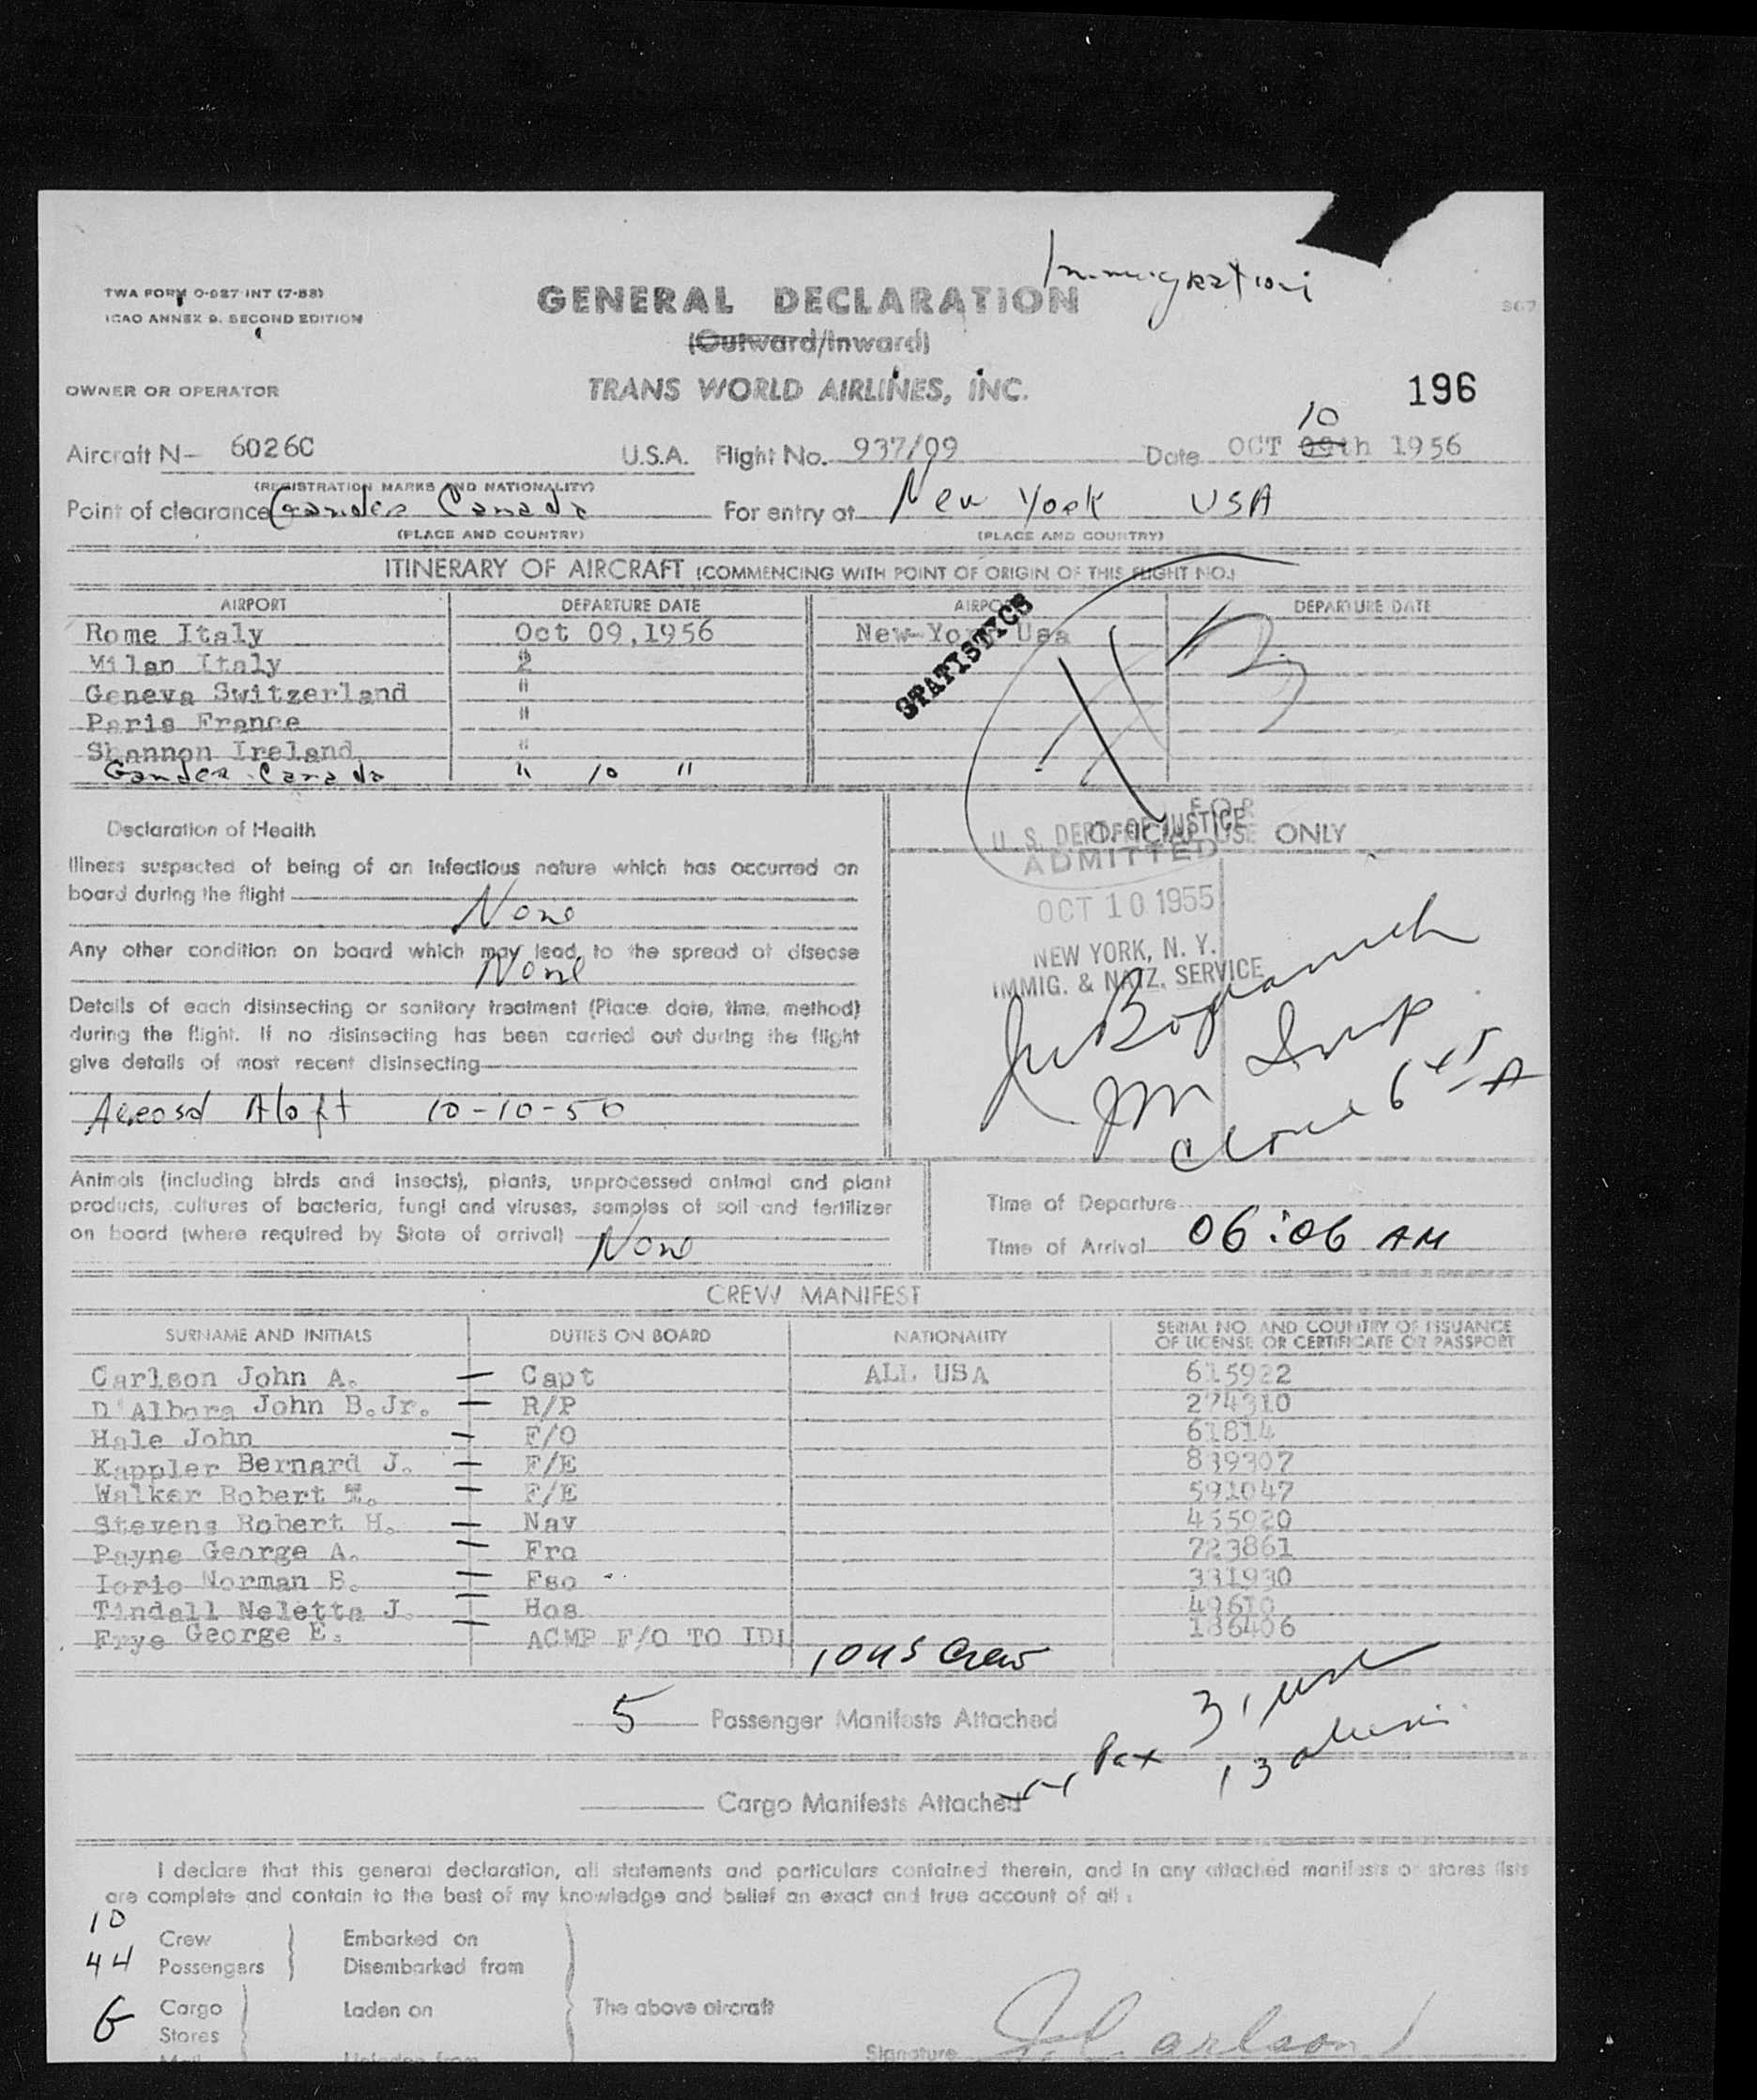 Immigration
TWA FORM 0-927 INT (7-53)
ICAO ANNEX 9. SECOND EDITION
GENERAL DECLARATION
(Outward/Inward)
367
OWNER OR OPERATOR
TRANS WORLD AIRLINES, INC.
196
10
Aircraft N- 6026C U.S.A. Flight No. 937/09 Date OCT 09th 1956
(REGISTRATION MARKS AND NATIONALITY)
Point of clearance Gander Canada For entry at New York USA
(PLACE AND COUNTRY) (PLACE AND COUNTRY)
ITINERARY OF AIRCRAFT (COMMENCING WITH POINT OF ORIGIN OF THIS FLIGHT NO.)
AIRPORT DEPARTURE DATE AIRPORT DEPARTURE DATE
Rome Italy Oct 09,1956 New York Usa
Milan Italy 2
Geneva Switzerland "
Paris France "
Shannon Ireland "
Gander Canada " 10 "
STATISTICS
Declaration of Health
FOR
OFFICIAL USE ONLY
U. S. DEPT. OF JUSTICE
ADMITTED
OCT 10 1955
NEW YORK, N. Y.
IMMIG. & NATZ. SERVICE
Illness suspected of being of an infectious nature which has occurred on
board during the flight
None
Any other condition on board which may lead to the spread of disease
None
Details of each disinsecting or sanitary treatment (Place, date, time, method)
during the flight. If no disinsecting has been carried out during the flight
give details of most recent disinsecting
Aerosol Aloft 10-10-56
Imm Insp
Animals (including birds and insects), plants, unprocessed animal and plant
products, cultures of bacteria, fungi and viruses, samples of soil and fertilizer
on board (where required by State of arrival) None
Time of Departure
Time of Arrival 06:06 AM
CREW MANIFEST
SURNAME AND INITIALS DUTIES ON BOARD NATIONALITY SERIAL NO. AND COUNTRY OF ISSUANCE
OF LICENSE OR CERTIFICATE OR PASSPORT
Carlson John A. — Capt ALL USA 615922
D'Albora John B.Jr. — R/P 274310
Hale John — F/O 61814
Kappler Bernard J. — F/E 839307
Walker Robert T. — F/E 591047
Stevens Robert H. — Nav 455920
Payne George A. — Fro 723861
Iorio Norman B. — Fso 331930
Tindall Neletta J. — Hos 49610
Frye George E. — ACMP F/O TO IDL 186406
10 US Crew
5 Passenger Manifests Attached
44 Pax 31 USC
13 aliens
Cargo Manifests Attached
I declare that this general declaration, all statements and particulars contained therein, and in any attached manifests or stores lists
are complete and contain to the best of my knowledge and belief an exact and true account of all :
10 Crew Embarked on
44 Passengers Disembarked from
6 Cargo Laden on The above aircraft
Stores
Signature J A Carlson